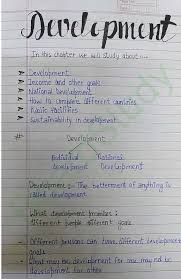 Development
In this chapter we will study about...
➤ Development
➤ Income and other goals
➤ National Development
➤ How to compare different countries
➤ Public facilities
➤ Sustainability in development
# Development
Individual National
development Development
Development :- The betterment of anything is
called development
What development promises :
different people different goals
- Different persons can have different development
goals
- What may be development for one may not be
development for other